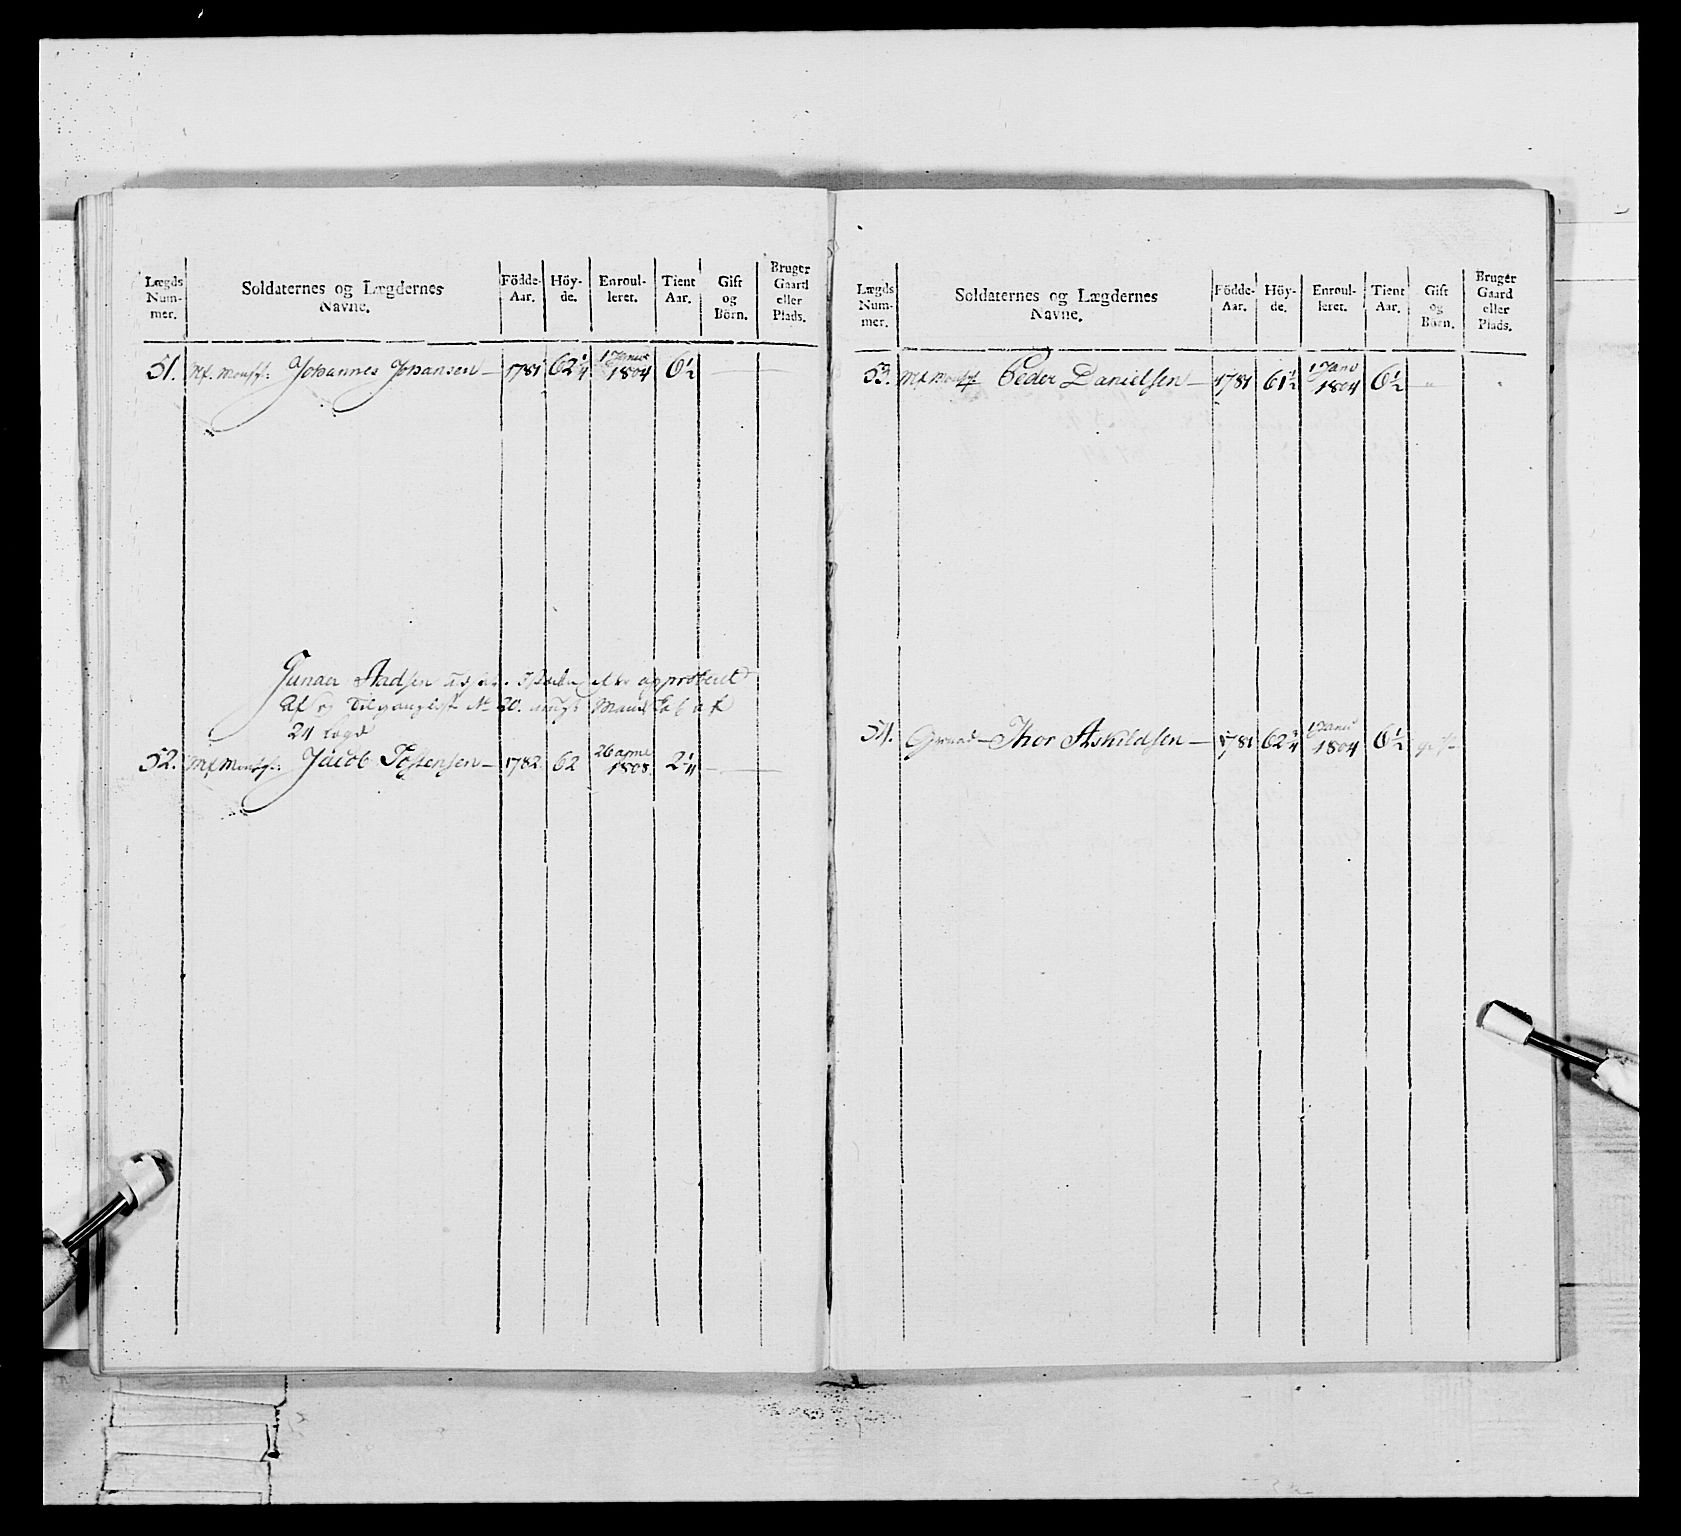 Lægds Num- mer.
Soldaternes og Lægdernes Navne.
Födde- Aar.
Höy- de.
Enroul- leret.
Tient Aar.
Gift og Börn.
Bruger Gaard eller Plads.
51. Johannes Johansen — 1781 62 1/4 1 Janu 1804 6 1/2 —
Gunder approberet
Af No 20. 
24 Lægd
52. Jacob Tostensen — 1782 62 26 1808 2 1/4 —
Lægds Num- mer.
Soldaternes og Lægdernes Navne.
Födde- Aar.
Höy- de.
Enroul- leret.
Tient Aar.
Gift og Börn.
Bruger Gaard eller Plads.
53. Peder Danielsen — 1781 61 1/2 1 Janu 1804 6 1/2
54. Thor Askildsen — 1781 62 3/4 1 Janu 1804 6 1/2 gift